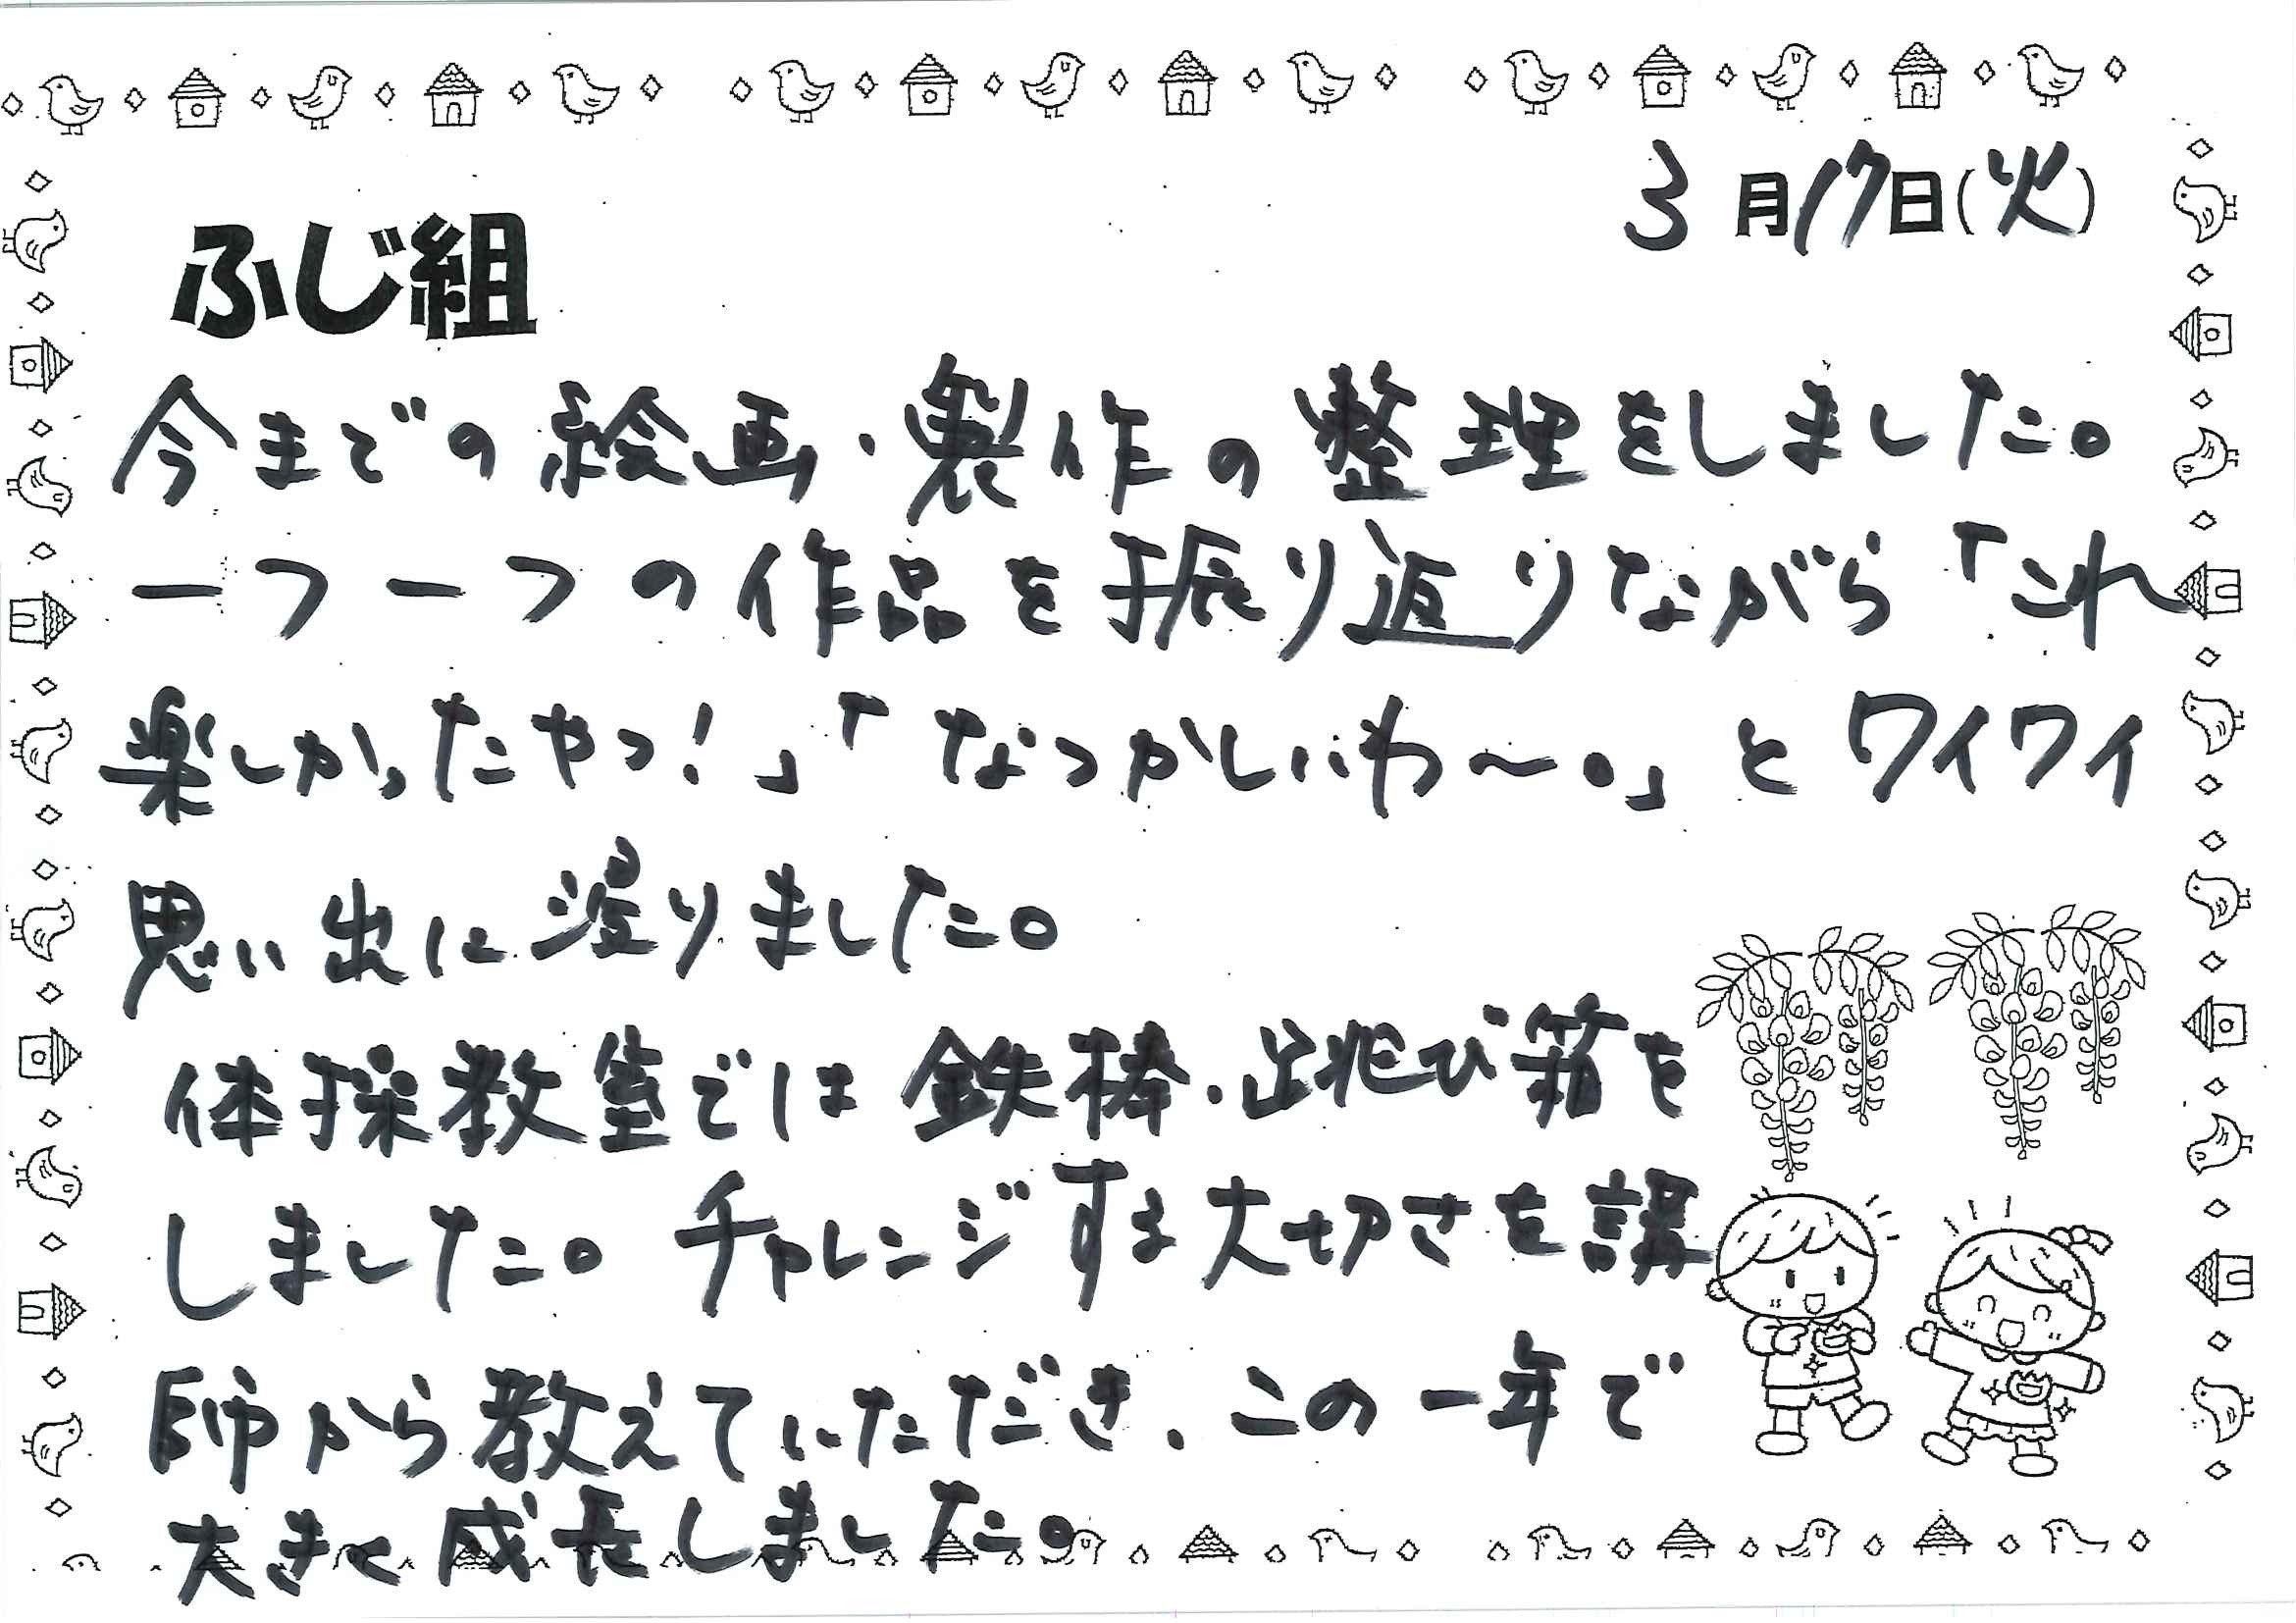 3月17日(火)
ふじ組
今までの絵画・製作の整理をしました。
一つ一つの作品を振り返りながら「これ
楽しかったやつ!」「なつかしいわ〜。」とワイワイ
思い出に浸りました。
体操教室では鉄棒、跳び箱を
しました。チャレンジする大切さを講
師から教えていただき、この一年で
大きく成長しました。